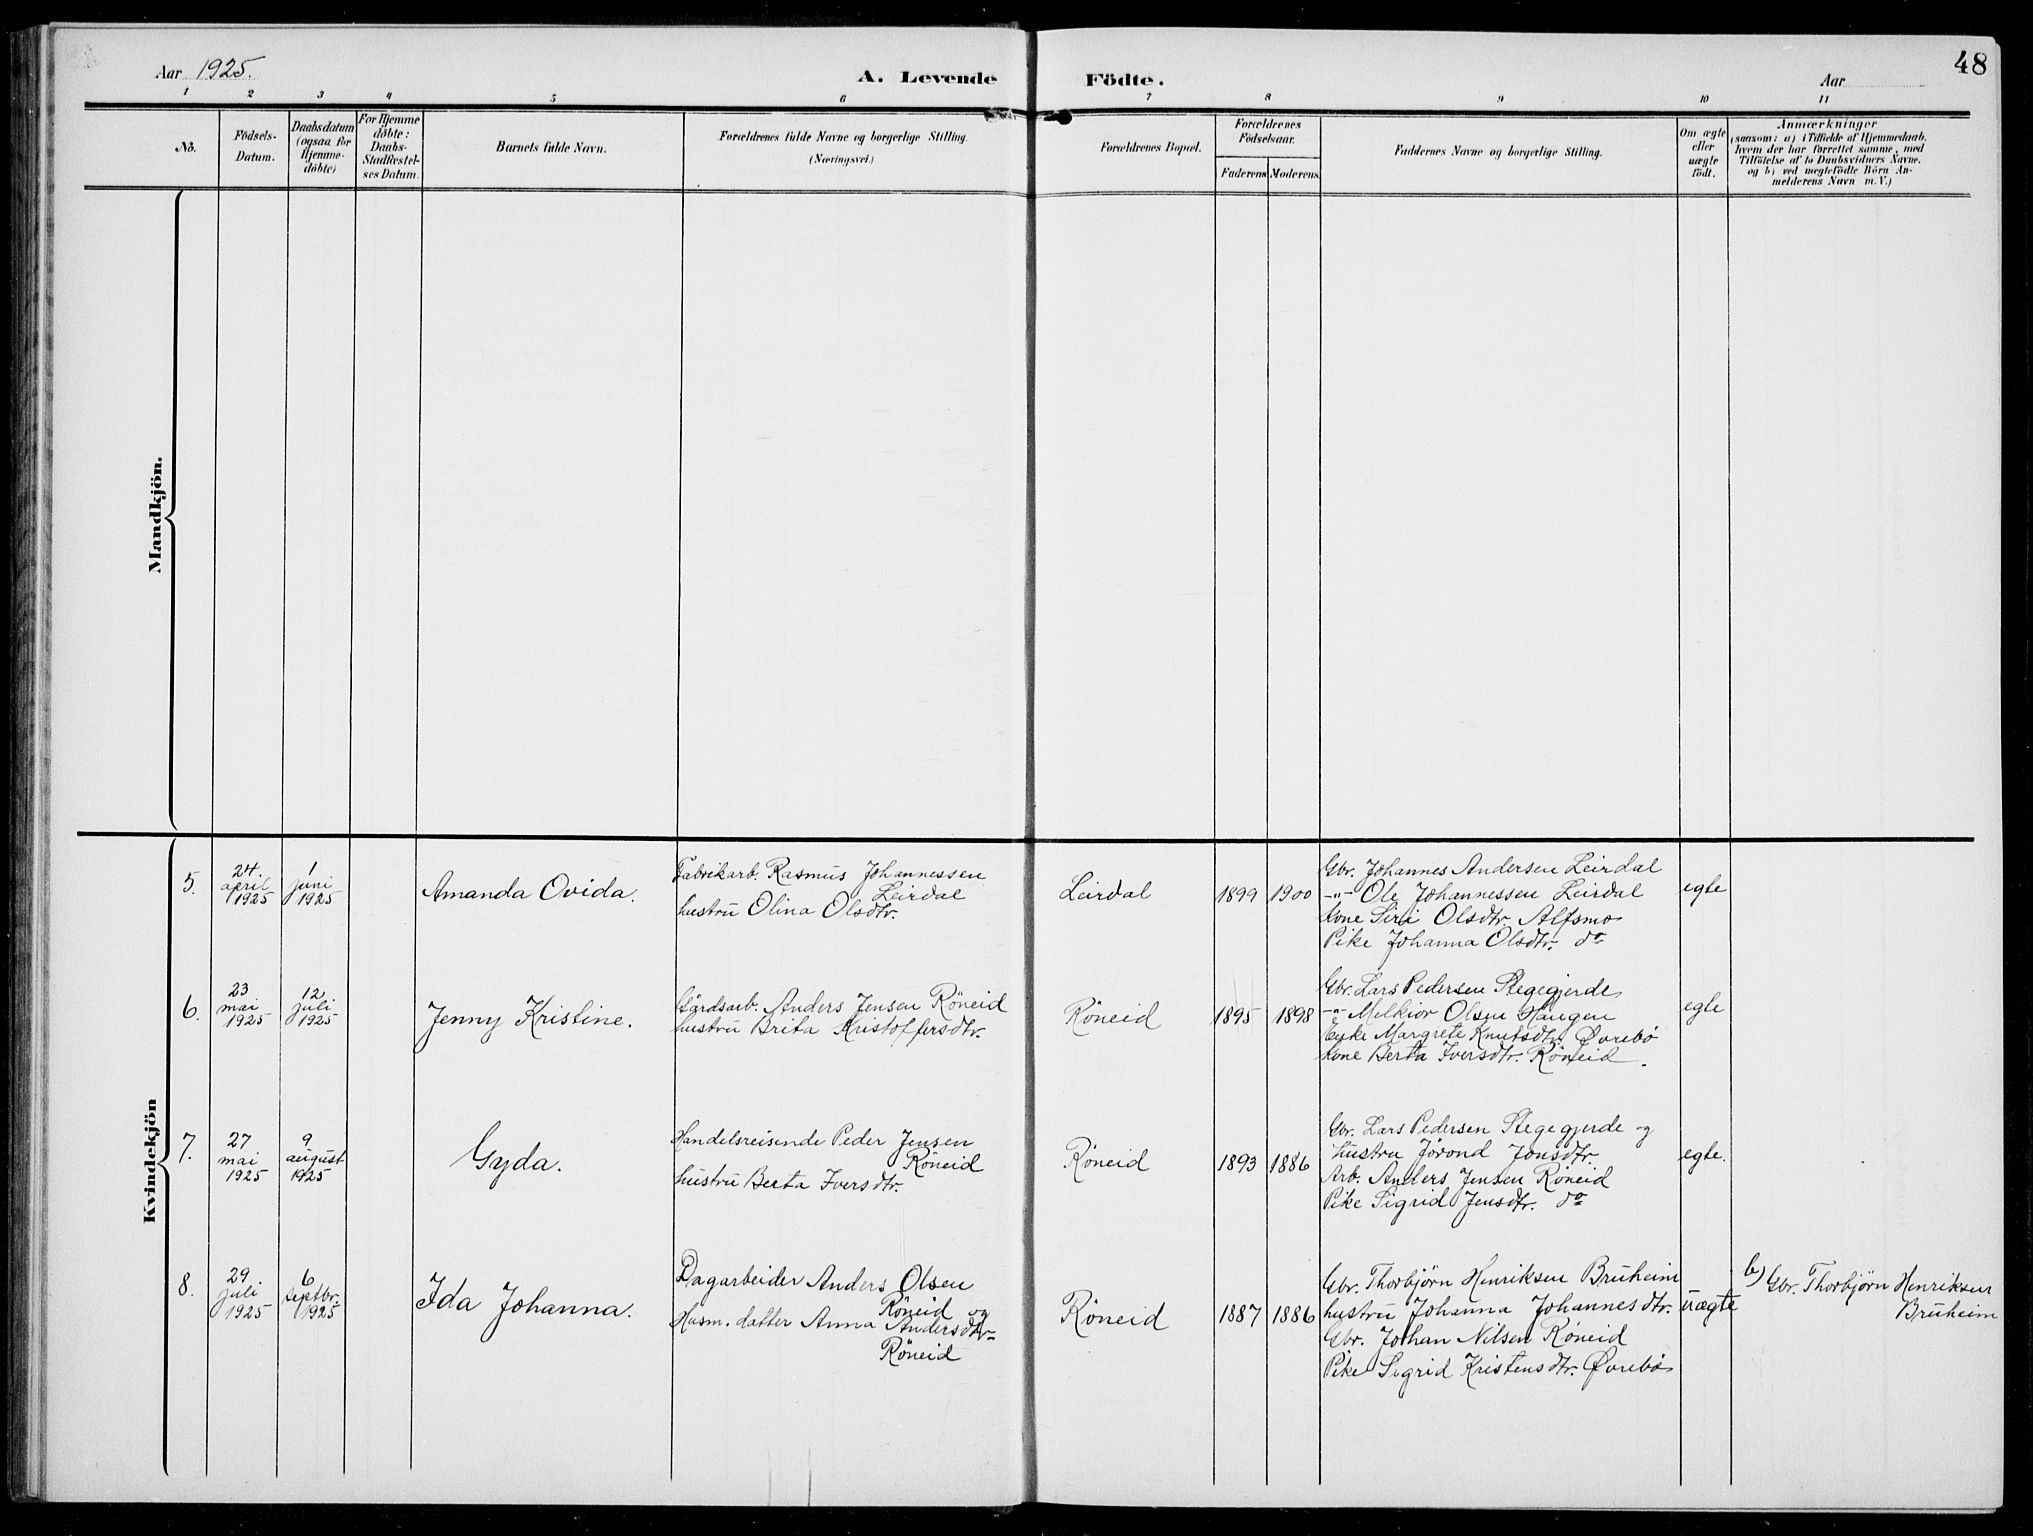 Aar 1925.
A. Levende Födte.
Aar
48
1 2 3 4 5 6 7 8 9 10 11
No.
Födsels-Datum.
Daabsdatum (ogsaa for Hjemme-döbte)
For Hjemme döbte: Daabs-Stadfæstelses Datum.
Barnets fulde Navn.
Forældrenes fulde Navne og borgerlige Stilling.
(Næringsvei.)
Forældrenes Bopæl.
Forældrenes Födselsaar.
Faderens Moderens
Faddernes Navne og borgerlige Stilling.
Om ægte eller uægte födt.
Anmærkninger
(saasom: a) i Tilfælde af Hjemmedaab,
hvem der har forrettet samme, med
Tilföielse af to Daabsvidners Navne.
og b) ved uægtefödte Börn An-
melderens Navn m. V.)
Mandkjön.
Kvindekjön
5. 24. april 1925
1 juni 1925
Amanda Ovida.
Fabrikarb. Rasmus Johannessen
Leirdal
hustru Olina Olsdtr.
Leirdal
1899 1900
Gbr. Johannes Andersen Leirdal
-"- Ole Johannessen Leirdal
Kone Siri Olsdtr. Alfsmo
Pike Johanna Olsdtr. do
egte
6. 23 mai 1925
12 juli 1925
Jenny Kristine.
Gårdsarb. Anders Jensen Röneid
hustru Brita Kristoffersdtr.
Röneid
1895 1898
Gbr. Lars Pedersen Stegegjerde
-"- Melkior Olsen Haugen
Enke Margrete Knutsdtr. Øvrebö
Kone Berta Iversdtr. Röneid.
egte
7. 27 mai 1925
9 august 1925
Gyda.
Handelsreisende Peder Jensen
Röneid
hustru Berta Iversdtr.
Röneid
1893 1886
Gbr. Lars Pedersen Stegegjerde og
hustru Jörond Jonsdtr.
Arb. Anders Jensen Röneid
Pike Sigrid Jensdtr. do
egte.
8. 29 juli 1925
6 septbr. 1925
Ida Johanna.
Dagarbeider Anders Olsen
Röneid og
Husm. datter Anna Andersdtr
Röneid
Röneid
1887 1886
Gbr. Thorbjörn Henriksen Bruheim
hustru Johanna Johannesdtr.
Gbr. Johan Nilsen Röneid
Pike Sigrid Kristensdtr. Øvrebö
uægte
b) Gbr. Thorbjörn Henriksen
Bruheim